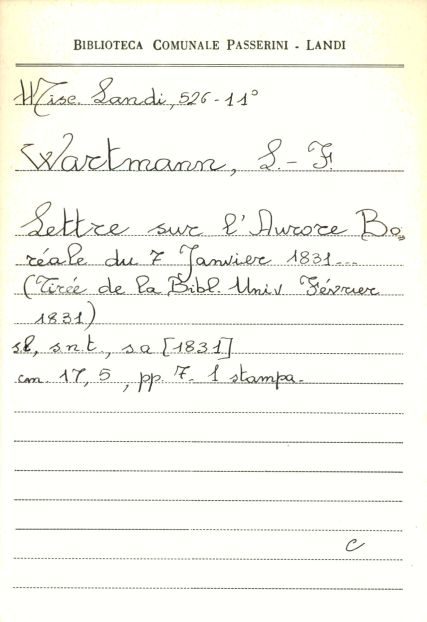 BIBLIOTECA COMUNALE PASSERINI - LANDI
Misc. Landi, 526-11°
Wartmann, L.-F.
Lettre sur l'Aurore Bo,
réale du 7 Janvier 1831...
(Tirée de la Bibl. Univ Février
1831)
s.l, s.n.t., s.a [1831]
cm. 17,5, pp. 7. 1 stampa.
c